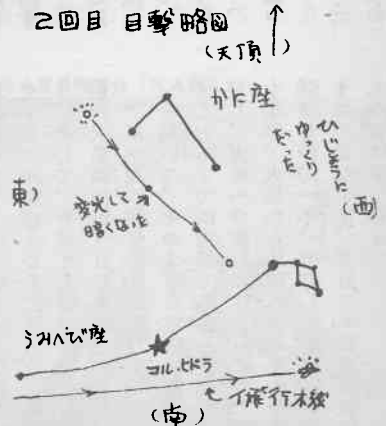 2回目 目撃略図
(天頂)
かに座
ひじょうに
ゆっくり
だった
東)
(西)
変光して
暗くなった
うみへび座
コル・ヒドラ
(南)